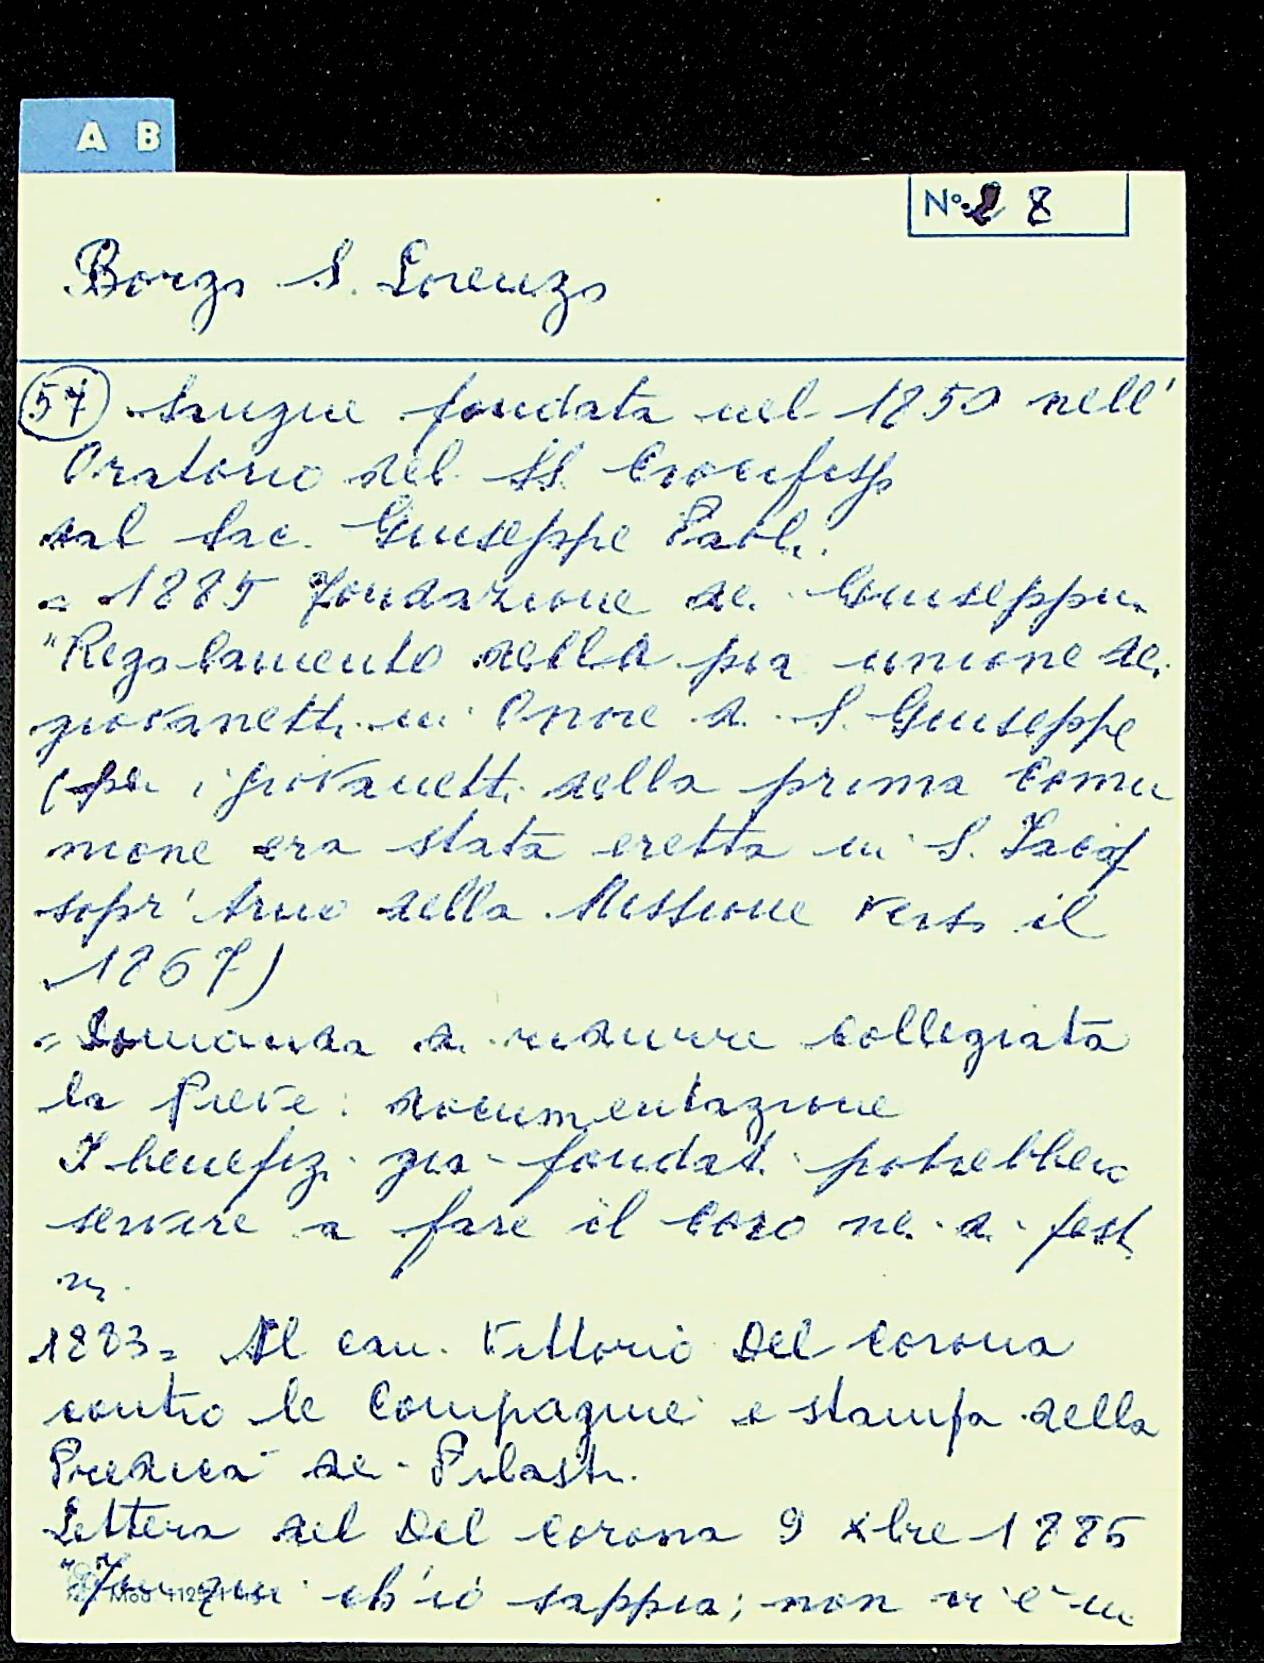 A B
N° 28
Borgo S. Lorenzo
57 Sangue fondata nel 1850 nell'
Oratorio del SS. Crocifisso
dal Sac. Giuseppe Paoli.
= 1885 Fondazione dei Giuseppini
"Regolamento della pia unione dei
giovanetti in Onore di S. Giuseppe
(per i giovanetti della prima Comu
nione era stata eretta in S. Jacopo
sopr'Arno della Missione verso il
1867)
= Domanda di ridurre collegiata
la Pieve: documentazione
I benefizi già fondati potrebbero
servire a fare il coro nei dì festi
vi.
1883= Al can. Vittorio Del Corona
contro le Compagnie e stampa della
Predica dei Pilastri.
Lettera del Del Corona 9 xbre 1885
ch'io sappia; non vi è in